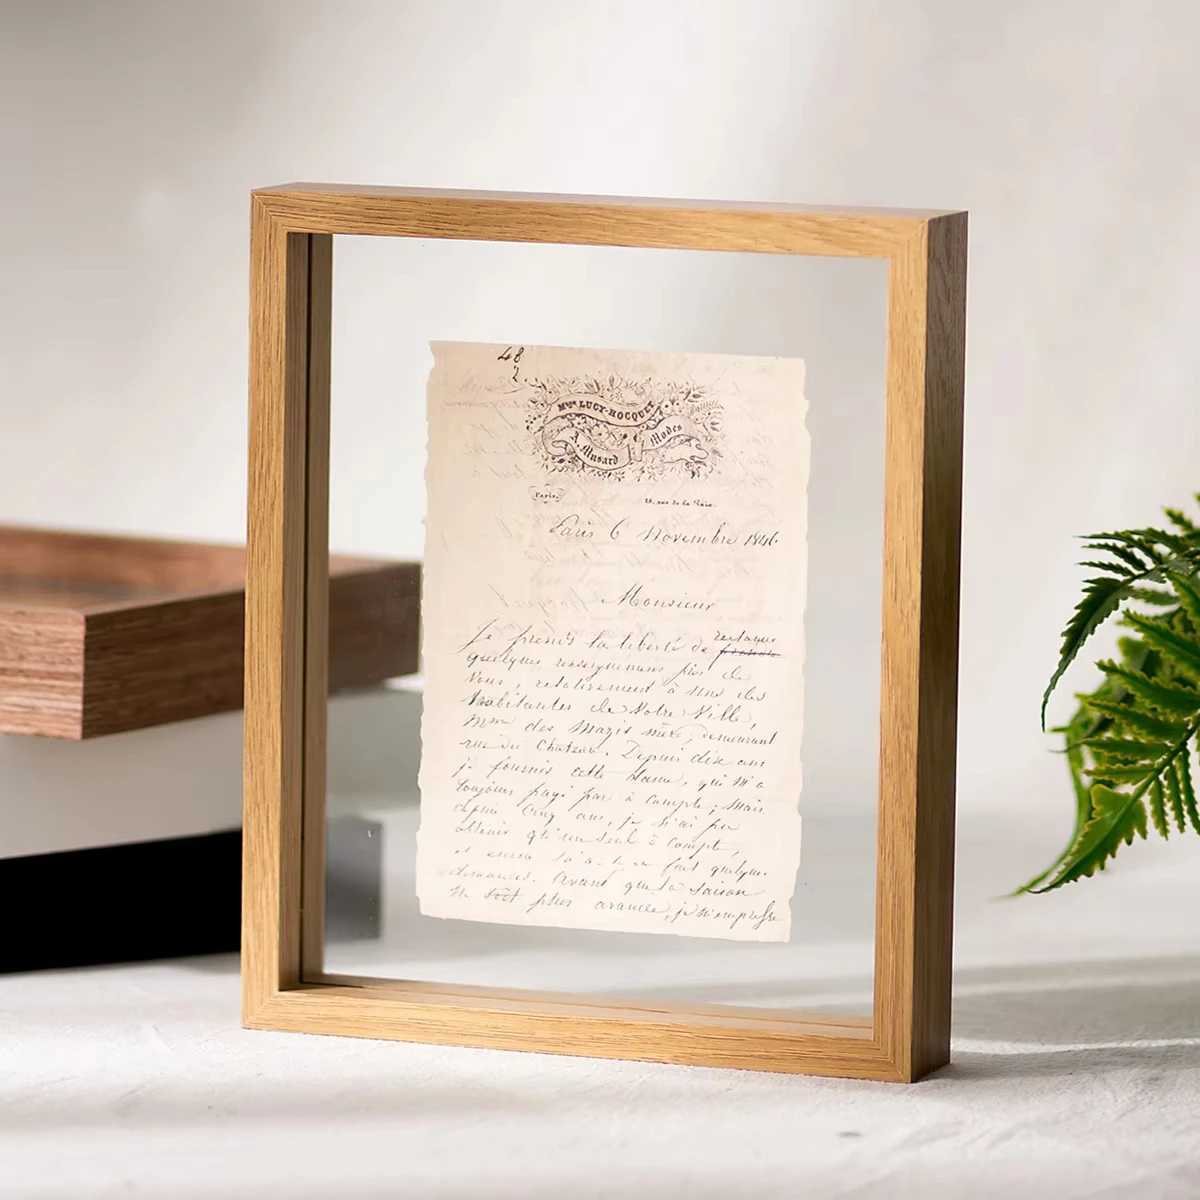 48
2
Mme LUCY-HOCQUET
A. Musard Modes
Paris. 28, rue de la Paix.
Paris 6 Novembre 1846.
Monsieur
Je prends la liberté de
quelques renseignemens près de
Vous, relativement à une des
habitantes de Votre Ville,
Mme des Mazis mère, demeurant
rue du Chateau. Depuis dix ans
je fournis cette Dame, qui m'a
toujours payé par à compte; mais
depuis cinq ans, je n'ai pu
obtenir qu'un seul à compte,
et encore fait quelques
demandes. Avant que la saison
ne soit plus avancée, je m'empresse